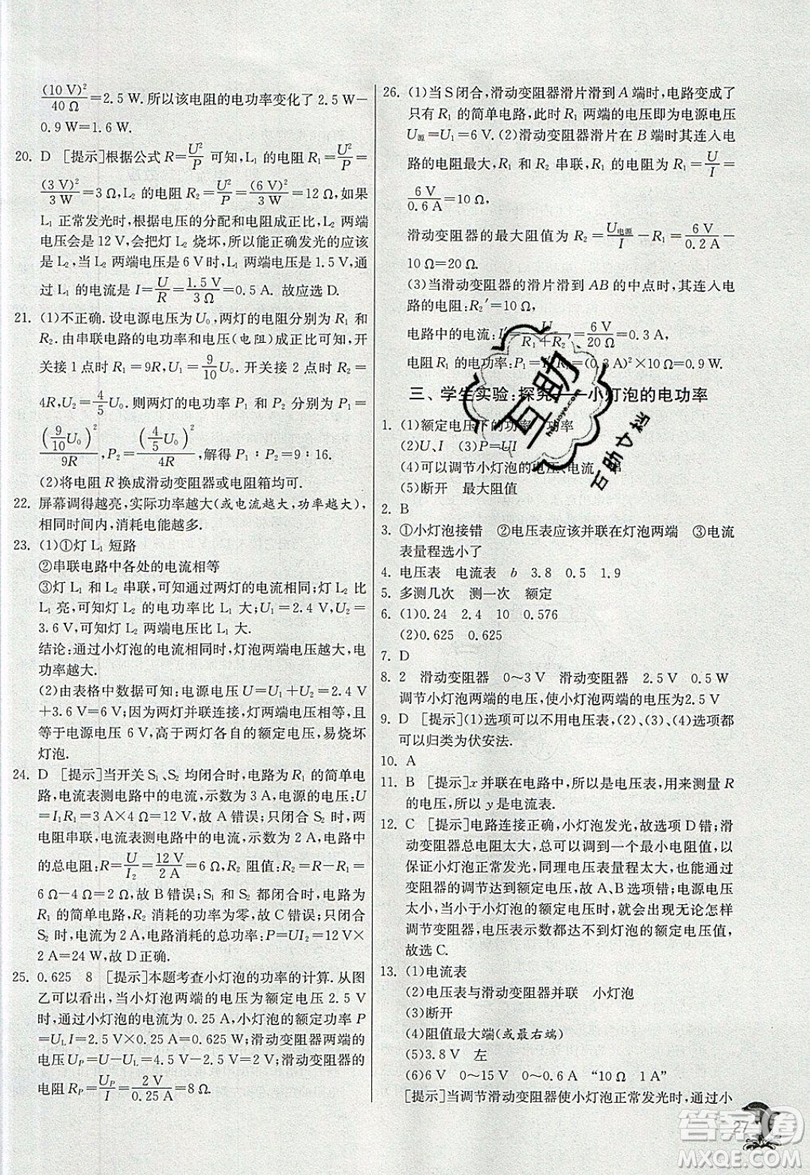 (10 V)²/40 Ω=2.5 W. 所以该电阻的电功率变化了 2.5 W-
0.9 W=1.6 W.
20. D [提示]根据公式 R=U²/P 可知, L₁ 的电阻 R₁=U²/P=
(3 V)²/3 W=3 Ω, L₂ 的电阻 R₂=U²/P=(6 V)²/3 W=12 Ω, 如果
L₁ 正常发光时, 根据电压的分配和电阻成正比, L₂ 两端
电压会是 12 V, 会把灯 L₂ 烧坏, 所以能正确发光的应该
是 L₂. 当 L₂ 两端电压是 6 V 时, 灯 L₁ 两端电压为 1.5 V,
通过 L₁ 的电流是 I=U/R=1.5 V/3 Ω=0.5 A. 故应选 D.
21. (1)不正确. 设电源电压为 U₀, 两灯的电阻分别为 R₁ 和
R₂. 由串联电路的电功率和电压(电阻)成正比可知, 开
关接 1 时 R₁=9R, U₁=9/10U₀. 开关接 2 时 R₂=
4R, U₂=4/5U₀. 则两灯的电功率 P₁ 和 P₂ 分别为 P₁=
(9/10U₀)²/9R, P₂=(4/5U₀)²/4R, 解得: P₁ : P₂=9 : 16.
(2)将电阻 R 换成滑动变阻器或电阻箱均可.
22. 屏幕调得越亮, 实际功率越大(或电流越大, 功率越大),
相同时间内, 消耗电能越多.
23. (1)①灯 L₁ 短路
②串联电路中各处的电流相等
③灯 L₁ 和 L₂ 串联, 可知通过两灯的电流相等; 灯 L₂ 比
L₁ 亮, 可知灯 L₂ 的电功率比 L₁ 大; U₁=2.4 V, U₂=
3.6 V, 可知灯 L₂ 两端电压比灯 L₁ 大.
结论: 通过小灯泡的电流相同时, 灯泡两端电压越大, 电
功率越大.
(2)由表格中数据可知: 电源电压 U=U₁+U₂=2.4 V
+3.6 V=6 V; 因为两灯并联连接, 灯两端电压相等, 且
等于电源电压 6 V, 高于两灯各自的额定电压, 易烧坏
灯泡.
24. D [提示]当开关 S₁、S₂ 均闭合时, 电路为 R₁ 的简单电
路, 电流表测电路中的电流, 示数为 3 A, 则电源电压 U=
I₁R₁=3 A×4 Ω=12 V, 故 A 错误; 只闭合 S₁ 时, 两
电阻串联, 电流表测电路中的电流, 示数为 2 A, 则电路中
的总电阻: U/I₂=12 V/2 A=6 Ω, R₂ 阻值: R₂=R-R₁=6 Ω-
4 Ω=2 Ω, 故 B 错误; S₁ 和 S₂ 都闭合时, 电路为
R₁ 的简单电路, R₂ 消耗的功率为零, 故 C 错误; 只闭合
S₁ 时, 电流为 2 A, 电路消耗的总功率: P=UI₂=12 V×
2 A=24 W. 故 D 正确.
25. 0.625 8 [提示]本题考查小灯泡的功率的计算. 从图
乙可以看出, 当小灯泡两端的电压为额定电压 2.5 V
时, 通过小灯泡的电流为 0.25 A, 小灯泡的额定功率 P=
U_L I=2.5 V×0.25 A=0.625 W; 滑动变阻器两端的
电压 U_P=U-U_L=4.5 V-2.5 V=2 V, 滑动变阻器的
电阻 R_P=U_P/I=2 V/0.25 A=8 Ω.
26. (1)当 S 闭合, 滑动变阻器滑片滑到 A 端时, 电路变成了
只有 R₁ 的简单电路, 此时 R₁ 两端的电压即为电源电压
U源=U₁=6 V. (2)滑动变阻器滑片在 B 端时其连入电
路的电阻最大, 与 R₁ 串联, 电阻 R₁ 的阻值为 R₁=U/I=
6 V/0.6 A=10 Ω,
滑动变阻器的最大阻值为 R₂=U电源/I-R₁=6 V/0.2 A-
10 Ω=20 Ω.
(3)当滑动变阻器的滑片滑到 AB 的中点时, 其连入电
路的电阻: R₂′=10 Ω,
电路中的电流: I=U/R₁+R₂=6 V/20 Ω=0.3 A,
电阻 R₁ 的电功率: P₁=(0.3 A)²×10 Ω=0.9 W.
三、学生实验: 探究——小灯泡的电功率
1. (1)额定电压下的功率 功率
(2)U、I (3)P=UI
(4)可以调节小灯泡的电压、电流
(5)断开 最大阻值
2. B
3. ①小灯泡接错 ②电压表应该并联在灯泡两端 ③电流
表量程选小了
4. 电压表 电流表 b 3.8 0.5 1.9
5. 多测几次 测一次 额定
6. (1)0.24 2.4 10 0.576
(2)0.625 0.625
7. D
8. 2 滑动变阻器 0～3 V 滑动变阻器 2.5 V 0.5 W
调节小灯泡两端的电压, 使小灯泡两端的电压为 2.5 V
9. D [提示](1)选项可以不用电压表, (2)、(3)、(4)选项都
可以归类为伏安法.
10. A
11. B [提示]x 并联在电路中, 所以是电压表, 用来测量 R
的电压, 所以 y 是电流表.
12. C [提示]电路连接正确, 小灯泡发光, 故选项 D 错; 滑
动变阻器总电阻太大, 可以调节到一个最小电阻值, 以
保证小灯泡正常发光, 同理电压表量程太大, 也能通过
变阻器的调节达到额定电压, 故 A、B 选项错; 电源电压
太小, 当小于小灯泡的额定电压时, 那么无论怎样调节
变阻器的阻值, 电压表示数都达不到灯泡的额定电压,
故选 C.
13. (1)电流表
(2)电压表与滑动变阻器并联 小灯泡
(3)断开
(4)阻值最大端(或最右端)
(5)3.8 V 左
(6)6 V 0～15 V 0～0.6 A “10 Ω 1 A”
[提示]当调节滑动变阻器使小灯泡正常发光时, 通过小
27
互助
互助文库
答案圈
MXQE.COM